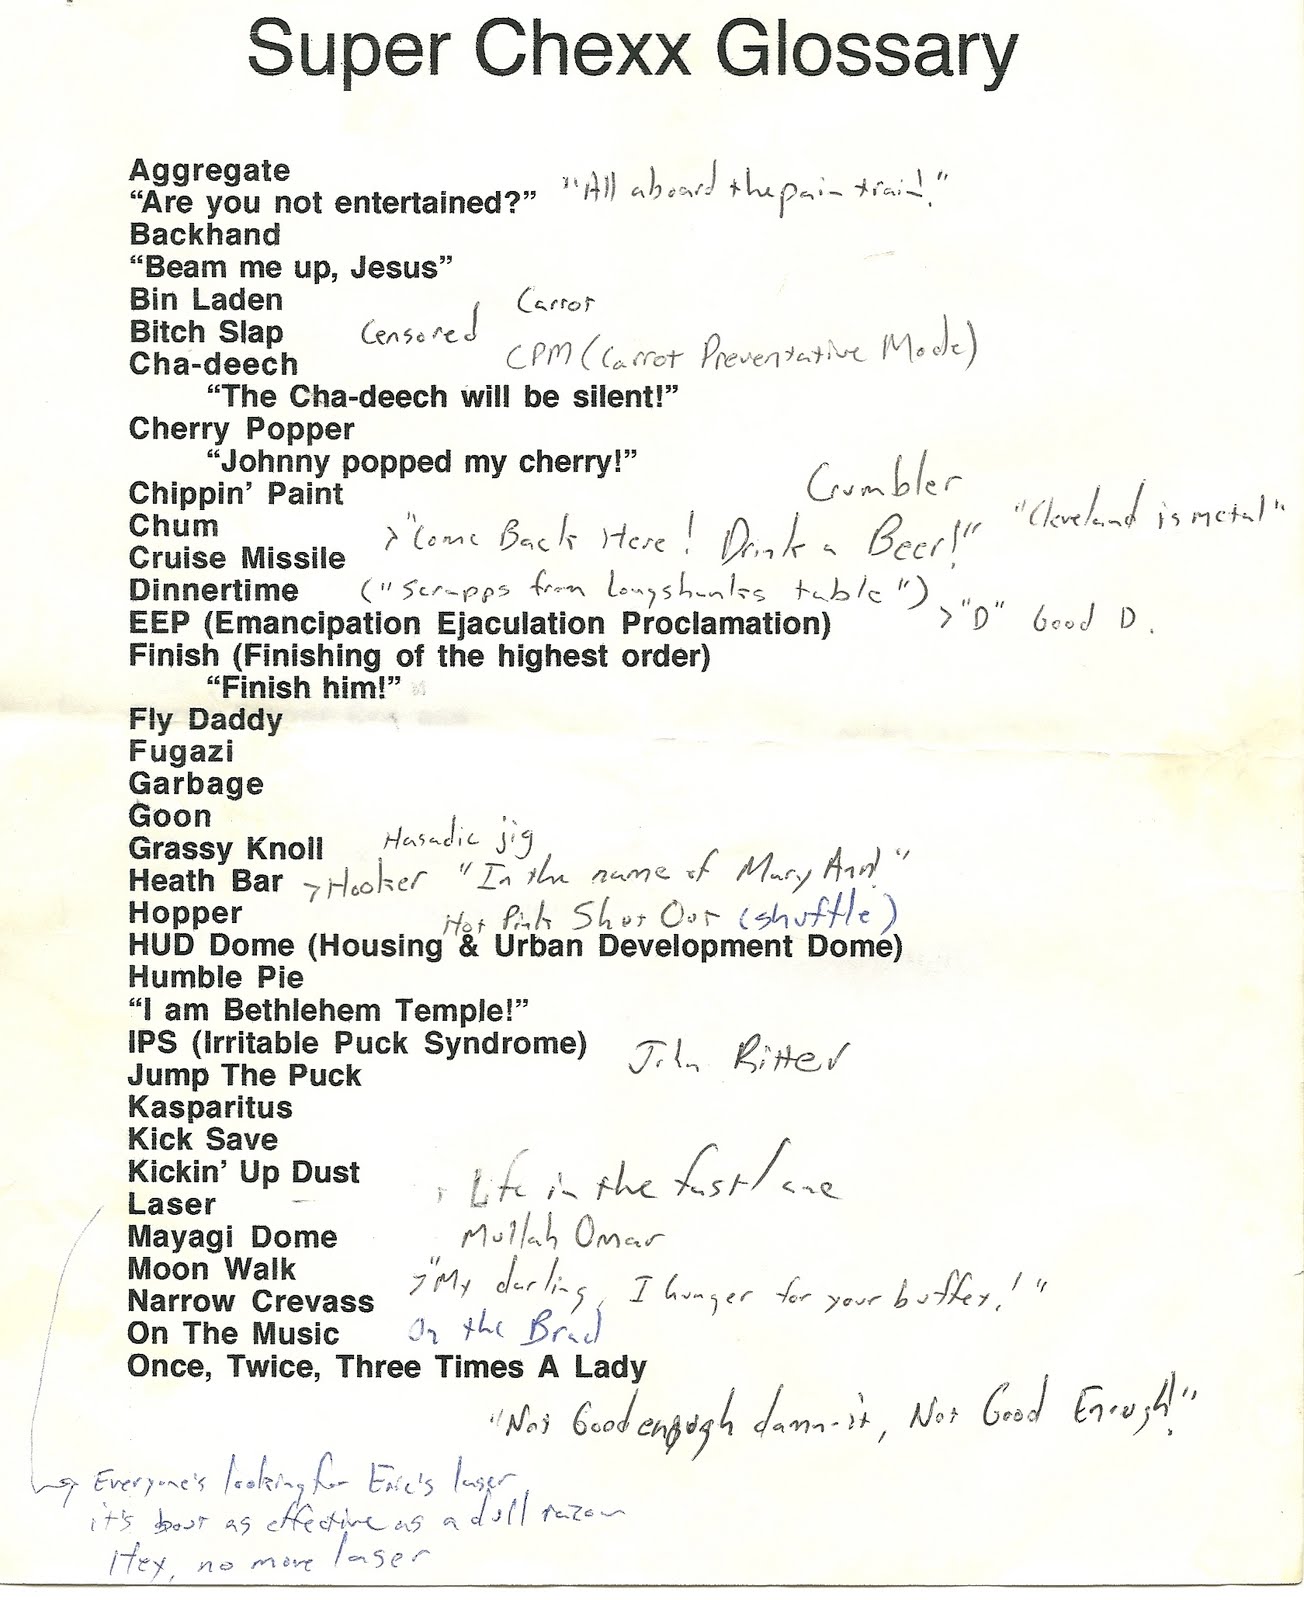 Super Chexx Glossary
Aggregate
"All aboard the pain train!"
“Are you not entertained?”
Backhand
“Beam me up, Jesus”
Bin Laden Carrot
Bitch Slap Censored
CPM (Carrot Preventative Mode)
Cha-deech
“The Cha-deech will be silent!”
Cherry Popper
“Johnny popped my cherry!”
Crumbler
Chippin’ Paint
"Cleveland is metal"
Chum >"Come Back Here! Drink a Beer!"
Cruise Missile
Dinnertime ("Scrapps from longshanks table")
>"D" Good D.
EEP (Emancipation Ejaculation Proclamation)
Finish (Finishing of the highest order)
“Finish him!”
Fly Daddy
Fugazi
Garbage
Goon
Hasadic jig
Grassy Knoll
Heath Bar >Hooker "In the name of Mary Ann!"
Hopper Hot Pink Shot Out (shuffle)
HUD Dome (Housing & Urban Development Dome)
Humble Pie
“I am Bethlehem Temple!”
IPS (Irritable Puck Syndrome) John Ritter
Jump The Puck
Kasparitus
Kick Save
Kickin’ Up Dust Life in the fast lane
Laser
Mayagi Dome Mullah Omar
Moon Walk >"My darling, I hunger for your buffet!"
Narrow Crevass
On The Music On the Brad
Once, Twice, Three Times A Lady
"Not Good enough damn-it, Not Good Enough!"
Everyone's looking for Eric's laser
it's bout as effective as a dull razor
Hey, no more laser